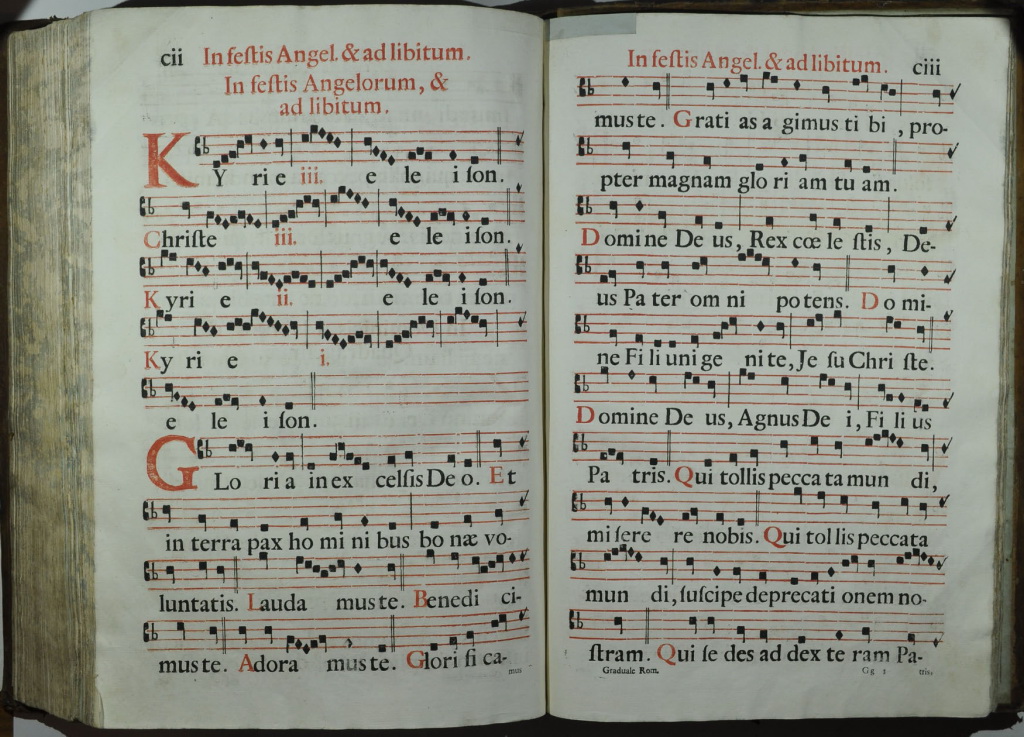 cii In feſtis Angel. & ad libitum.
In feſtis Angelorum, &
ad libitum.
KY ri e iii. e le i ſon.
Chriſte iii. e le i ſon.
Kyri e ii. e le i ſon.
Ky ri e i.
e le i ſon.
GLo ri a in ex celſis De o. Et
in terra pax ho mi ni bus bo næ vo-
luntatis. Lauda mus te. Benedi ci-
mus te. Adora mus te. Glori fi ca-
mus
In feſtis Angel. & ad libitum. ciii
mus te. Grati as a gimus ti bi, pro-
pter magnam glo ri am tu am.
Domi ne De us, Rex cœ le ſtis, De-
us Pa ter om ni po tens. Do mi-
ne Fi li uni ge ni te, Je ſu Chri ſte.
Domine De us, Agnus De i, Fi li us
Pa tris. Qui tollis pecca ta mun di,
mi ſere re nobis. Qui tol lis peccata
mun di, ſuſcipe deprecati onem no-
ſtram. Qui ſe des ad dex te ram Pa-
Graduale Rom. Gg 3 tris,